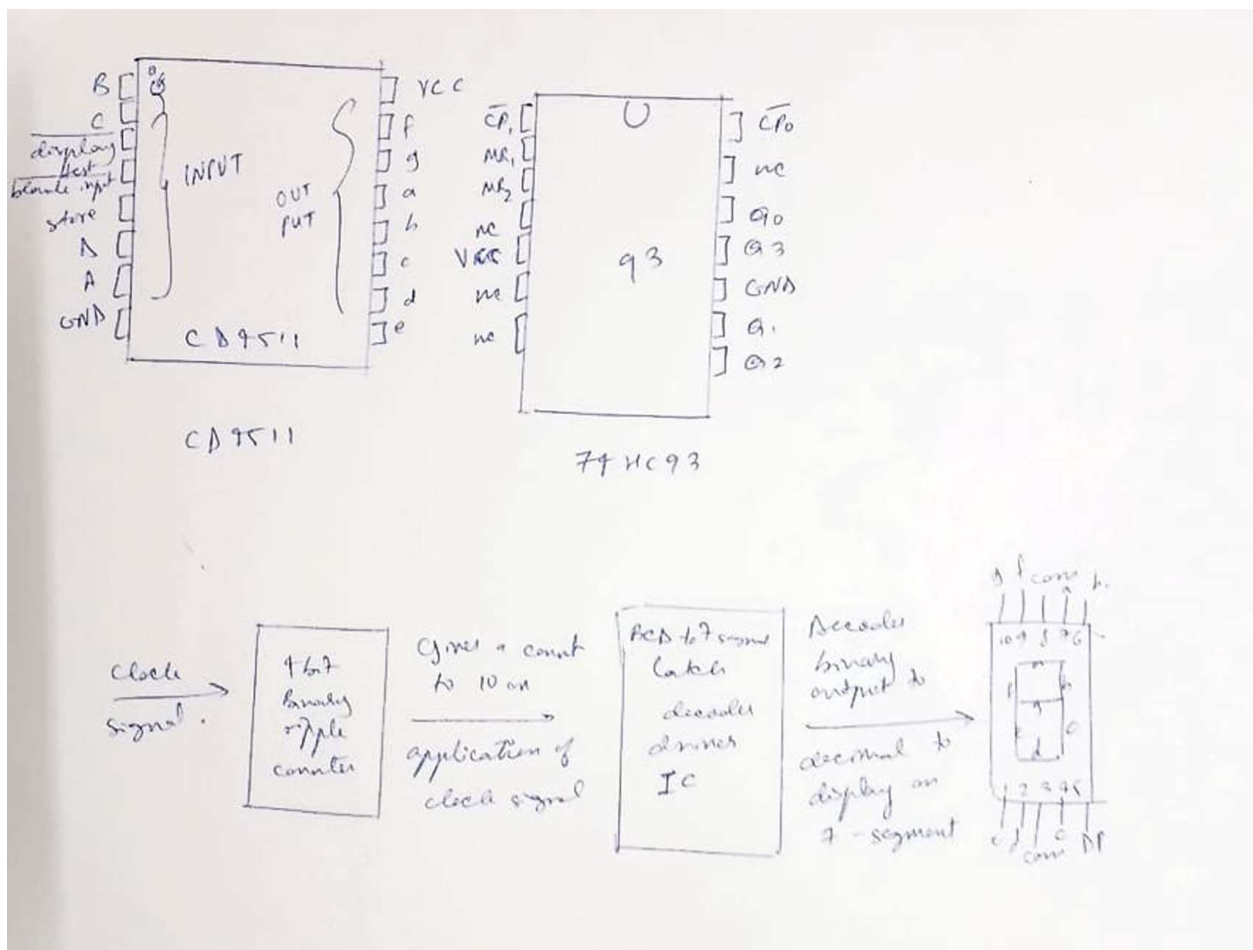 B
C
display
test
input
store
D
A
GND
INPUT
OUT
PUT
VCC
f
g
a
b
c
d
e
CD4511
CD4511
CP1
MR1
MR2
nc
nc
nc
93
CP0
nc
Q0
Q3
GND
Q1
Q2
74HC93
clock
signal.
4 bit
Binary
ripple
counter
Gives a count
to 10 on
application of
clock signal
BCD to 7
latch
decoder
driver
IC
Decodes
binary
output to
decimal to
display on
7-segment
g f com a b.
10 9 8 7 6
a
f b
g
e c
d
1 2 3 4 5
e d com c DP